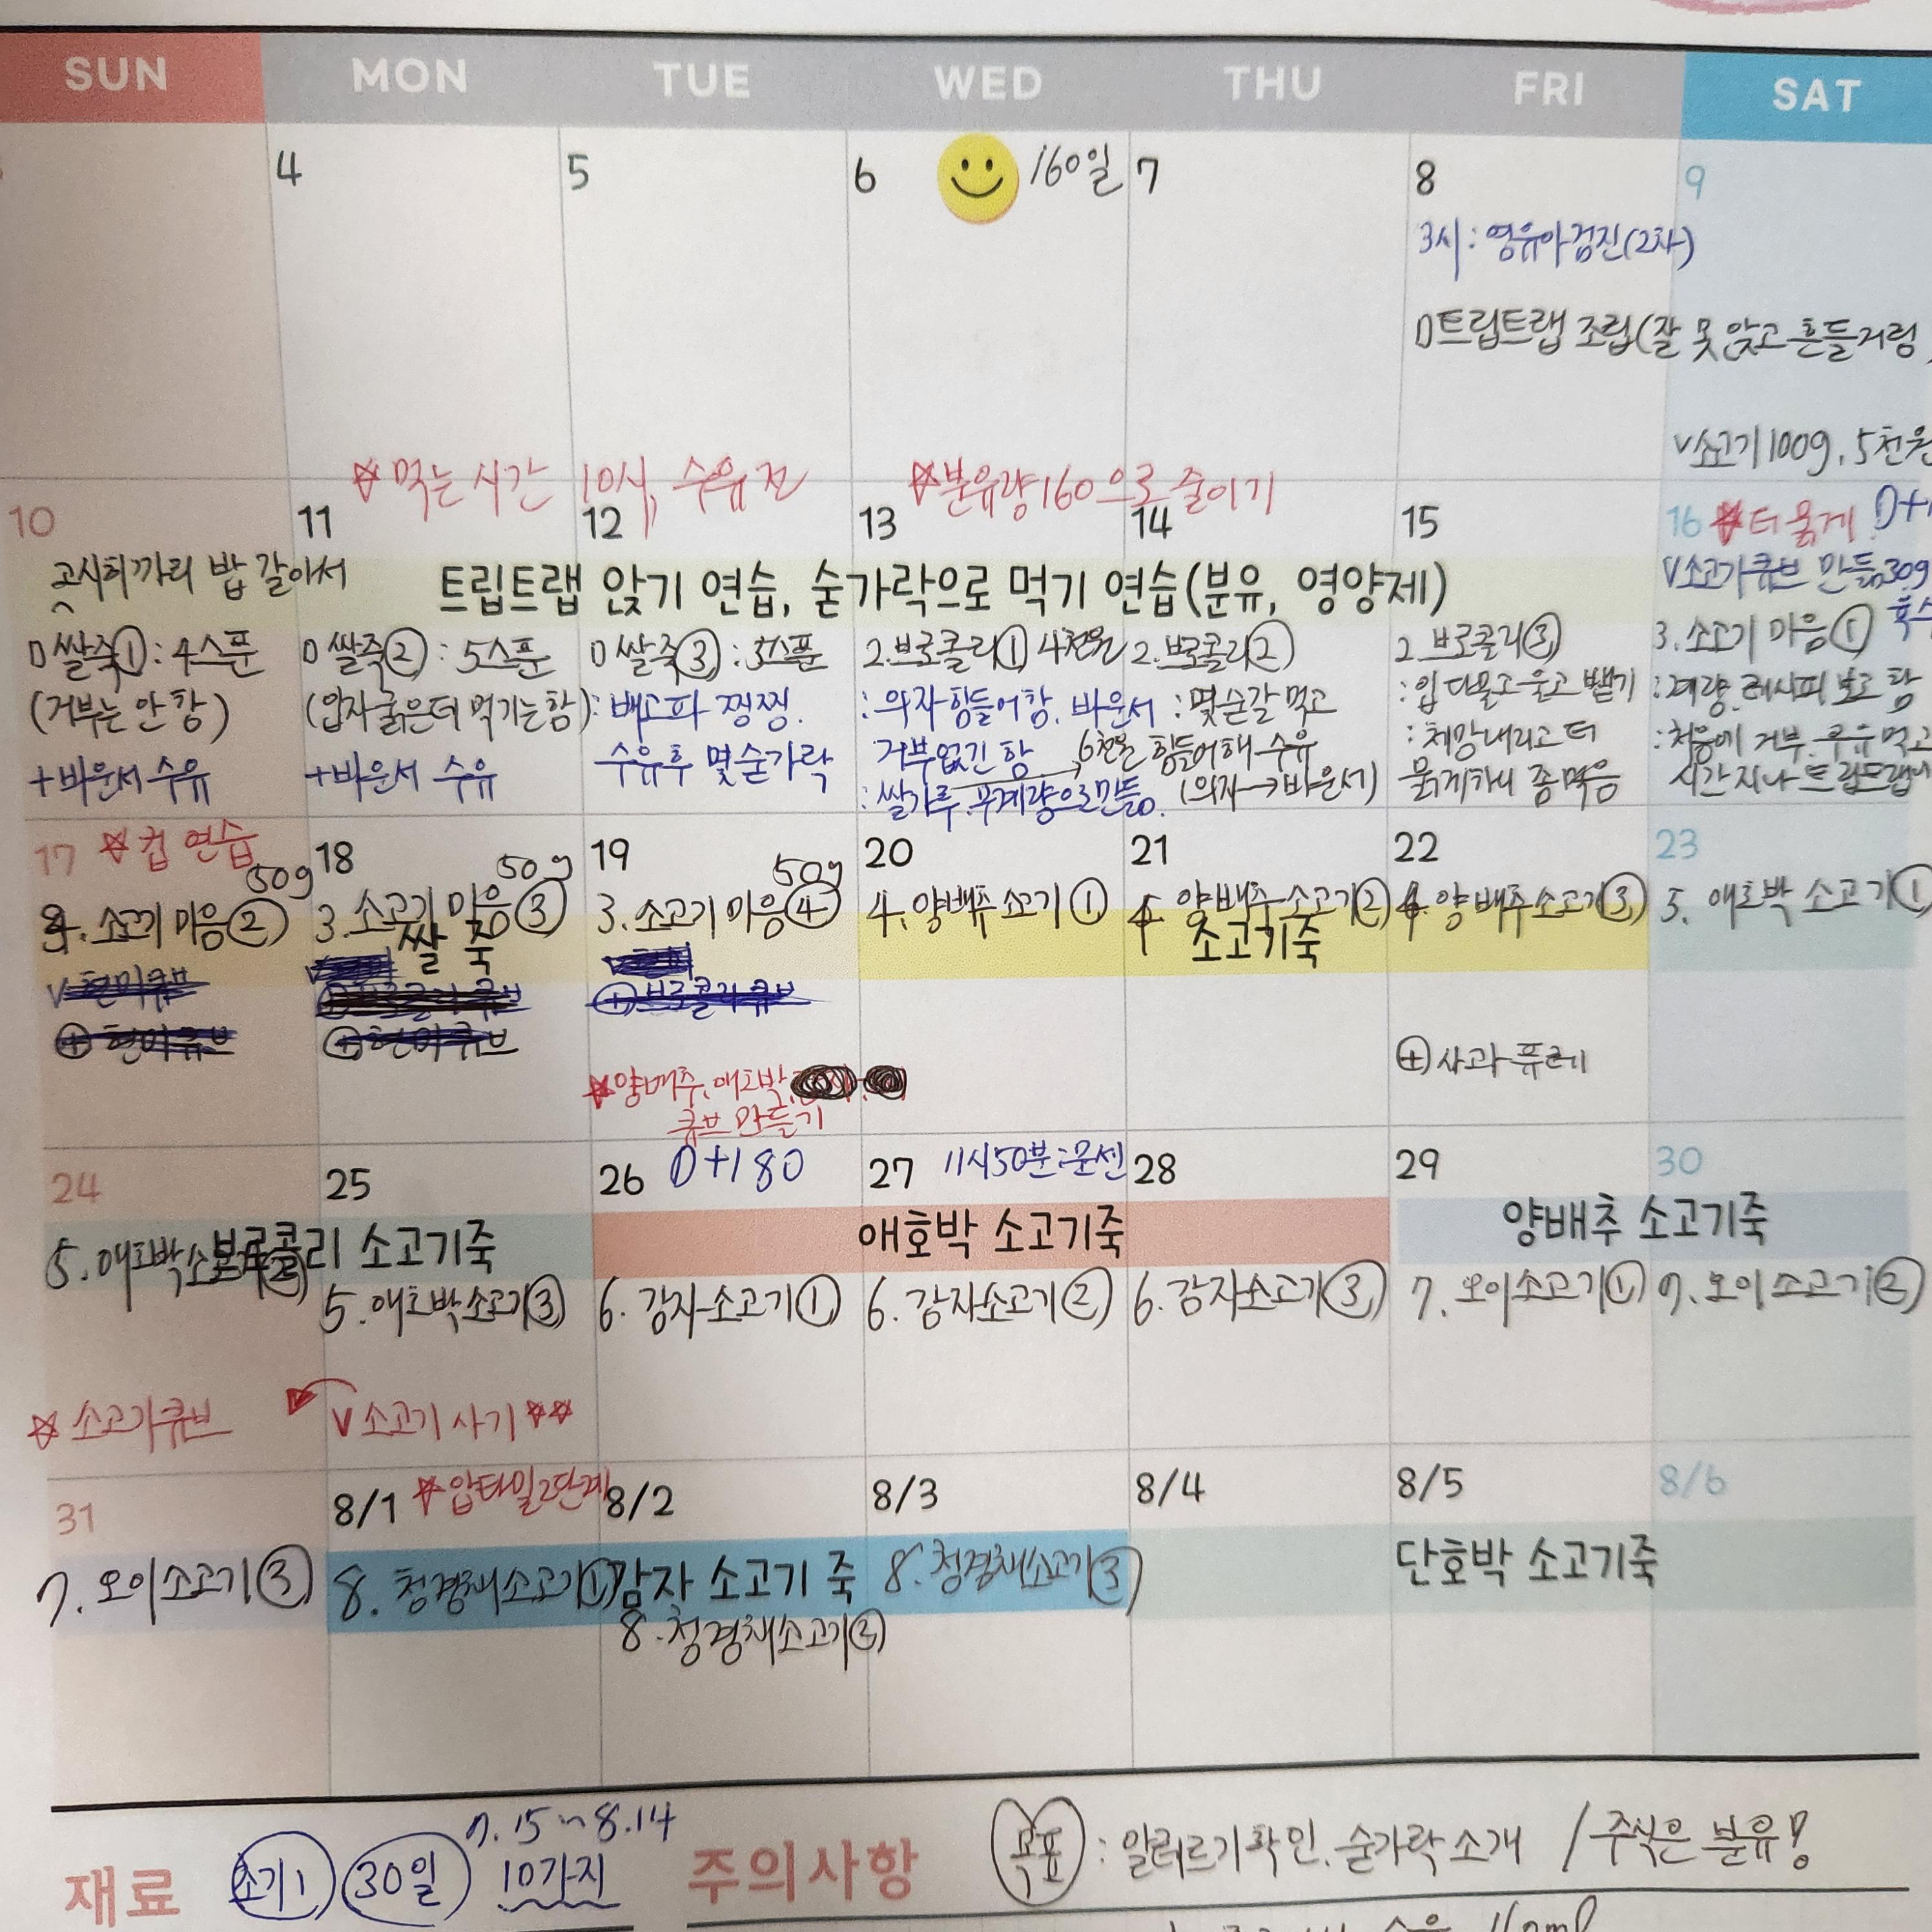 SUN MON TUE WED THU FRI SAT
4 5 6 160일 7 8 9
3시: 영유아검진(2차)
트립트랩 조립(잘 못 앉고 흔들거렁
V소고기 100g, 5천원
☆먹는 시간 10시, 수유 전
☆분유량 160으로 줄이기
10 11 12 13 14 15 16 ☆더 묽게
고시히까리 밥 갈아서
트립트랩 앉기 연습, 숟가락으로 먹기 연습(분유, 영양제)
V소고기큐브 만듦 30g
쌀죽①: 4스푼
(거부는 안 함)
+바운서 수유
쌀죽②: 5스푼
(입자 굵은데 먹기는 함)
+바운서 수유
쌀죽③: 3스푼
: 배고파 찡찡.
수유후 몇 숟가락
2.브로콜리① 4천원
: 의자 힘들어함. 바운서
거부 없긴 함
: 쌀가루 무게량으로 만듦.
2.브로콜리②
: 몇 숟갈 먹고
힘들어해 수유
(의자→바운서)
2.브로콜리③
: 입 다물고 울고 뱉기
: 체망 내리고 더
묽게하니 좀 먹음
3.소고기 미음①
: 계량. 레시피 보고 함
: 처음에 거부.
시간 지나 트립트랩
17 ☆컵 연습 18 19 20 21 22 23
50g
소고기 미음②
50g
3.소고기 미음③
쌀 죽
50g
3.소고기 미음④
4.양배추 소고기①
양배추 소고기②
소고기죽
양배추소고기③
5. 애호박 소고기①
V현미큐브
⊕현미큐브
⊕브로콜리큐브
⊕현미큐브
⊕브로콜리큐브
⊕사과퓨레
☆양배추, 애호박,
큐브 만들기
24 25 26 D+180 27 11시50분:문센 28 29 30
브로콜리 소고기죽
애호박 소고기죽
양배추 소고기죽
5.애호박소고기②
5.애호박소고기③
6. 감자소고기①
6. 감자소고기②
6. 감자소고기③
7. 오이소고기①
7. 오이소고기②
☆소고기큐브
V소고기 사기☆☆
31 8/1 ☆압타밀2단계 8/2 8/3 8/4 8/5 8/6
7. 오이소고기③
8. 청경채소고기①
감자 소고기 죽
8. 청경채소고기②
8. 청경채소고기③
단호박 소고기죽
7.15~8.14
재료 초기1 30일 10가지
주의사항 목표: 알레르기확인, 숟가락 소개 / 주식은 분유!